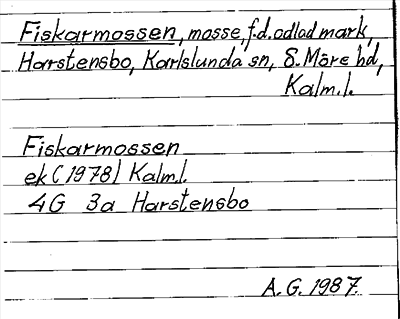 Fiskarmossen, mosse, f.d. odlad mark,
Harstensbo, Karlslunda sn, S. Möre hd,
Kalm.l.
Fiskarmossen
ek (1978) Kalm.l.
4G 3a Harstensbo
A.G. 1987.